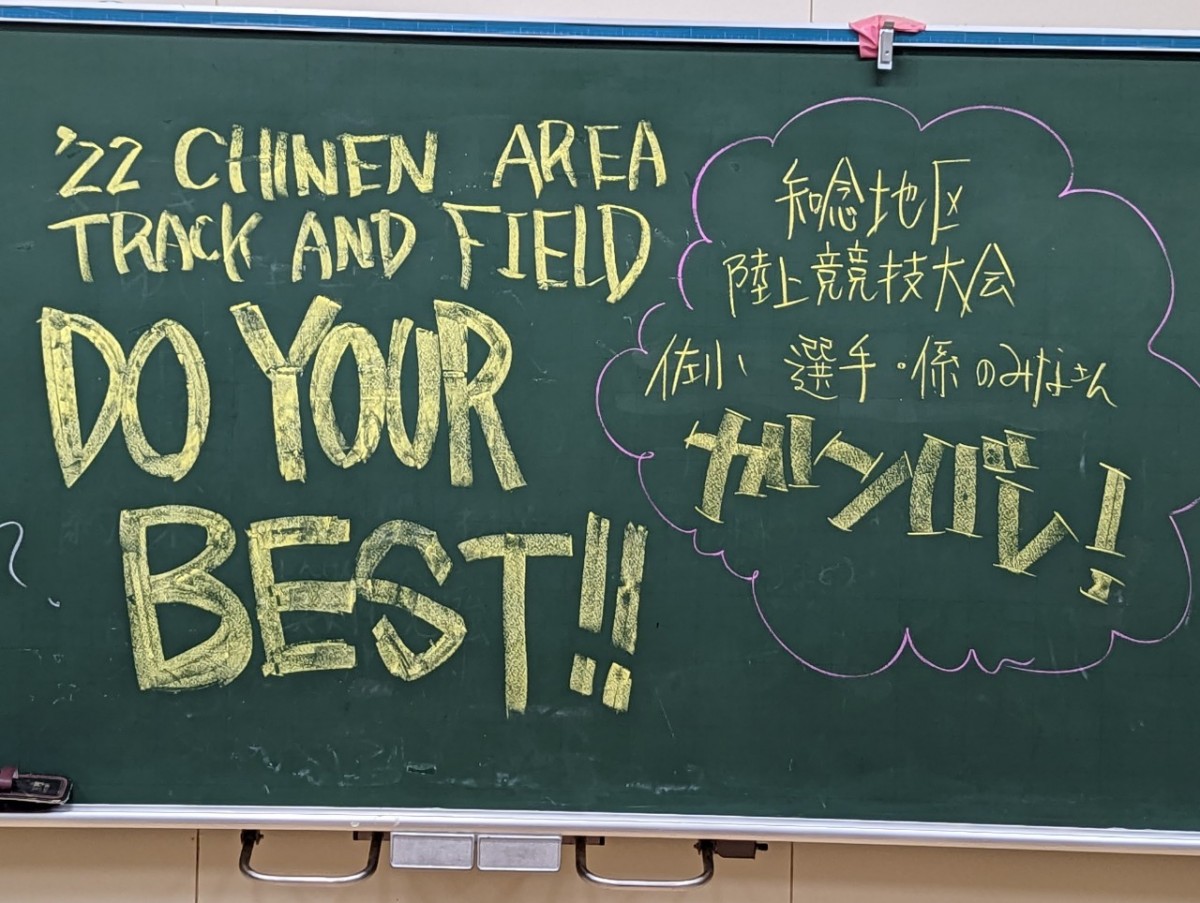 '22 CHINEN AREA
TRACK AND FIELD
DO YOUR
BEST!!
知念地区
陸上競技大会
佐小 選手・係のみなさん
ガンバレ!